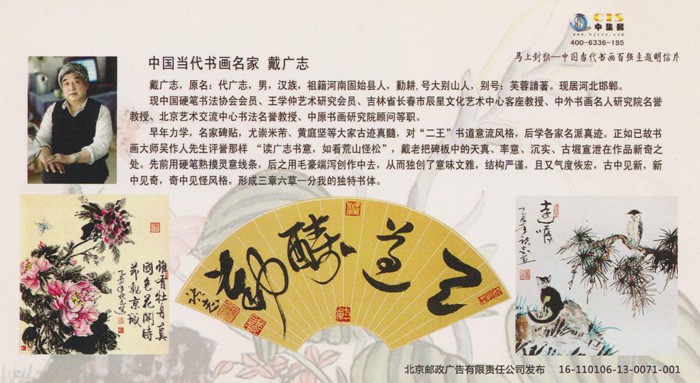 CIS
中集邮
www.hjxjn.com
400-6336-185
中国当代书画名家 戴广志
马上封侯—中国当代书画百强主题明信片
戴广志，原名：代广志，男，汉族，祖籍河南固始县人，勤耕,号大别山人，别号：芙蓉請著。现居河北邯郸。
现中国硬笔书法协会会员、王学仲艺术研究会员、吉林省长春市辰星文化艺术中心客座教授、中外书画名人研究院名誉
教授、北京艺术交流中心书法名誉教授、中原书画研究院顾问等职。
早年力学，名家碑贴，尤崇米芾、黄庭坚等大家古迹真髓，对“二王”书道意流风格，后学各家名派真迹。正如已故书
画大师吴作人先生评誉那样 “读广志书意，如看荒山怪松”，戴老把碑板中的天真、率意、沉实、古堀宣泄在作品新奇之
处。先前用硬笔熟摸灵意线条，后之用毛豪端泻创作中去，从而独创了意味文雅，结构严谨，且又气度恢宏，古中见新，新
中见奇，奇中见怪风格。形成三章六草一分我的独特书体。
唯有牡丹真
國色花開時
節動京城
天道酬勤
远瞻
北京邮政广告有限责任公司发布 16-110106-13-0071-001